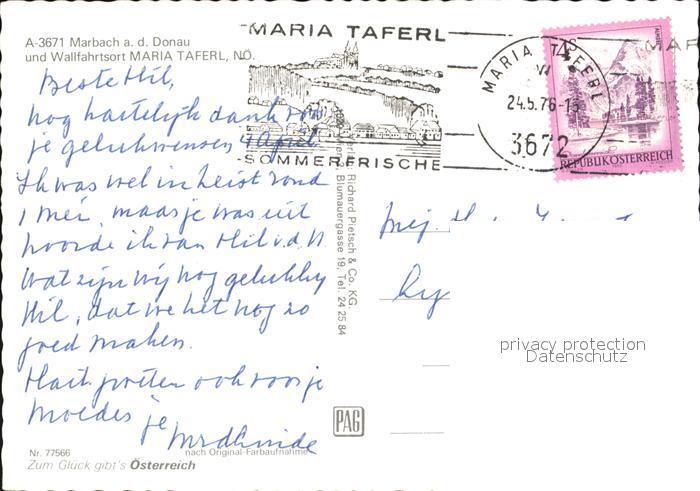 A-3671 Marbach a. d. Donau
und Wallfahrtsort MARIA TAFERL, NÖ.
MARIA TAFERL
SOMMERFRISCHE
MARIA TAFERL
24.5.76
3672
REPUBLIK ÖSTERREICH
Beste Hil,
nog hartelijk dank voor
je gelukwensen 4 April.
Ik was wel in Zeist rond
1 mei, maar je was uit
hoorde ik van Hil v.d.
Wat zijn wij nog gelukkig
Hil, dat we het nog zo
goed maken.
Hart. groeten ook voor je
moeder je
Richard Pietsch & Co. KG.
Blumauergasse 19, Tel. 24 25 84
privacy protection
Datenschutz
PAG
Nr. 77566
nach Original-Farbaufnahme
Zum Glück gibt's Österreich